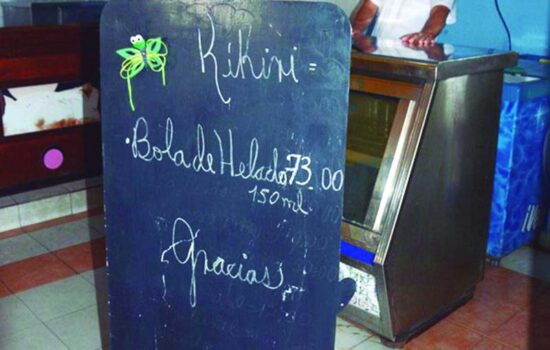 Kikiri =
. Bola de Helado 73.00
150 ml.
Gracias